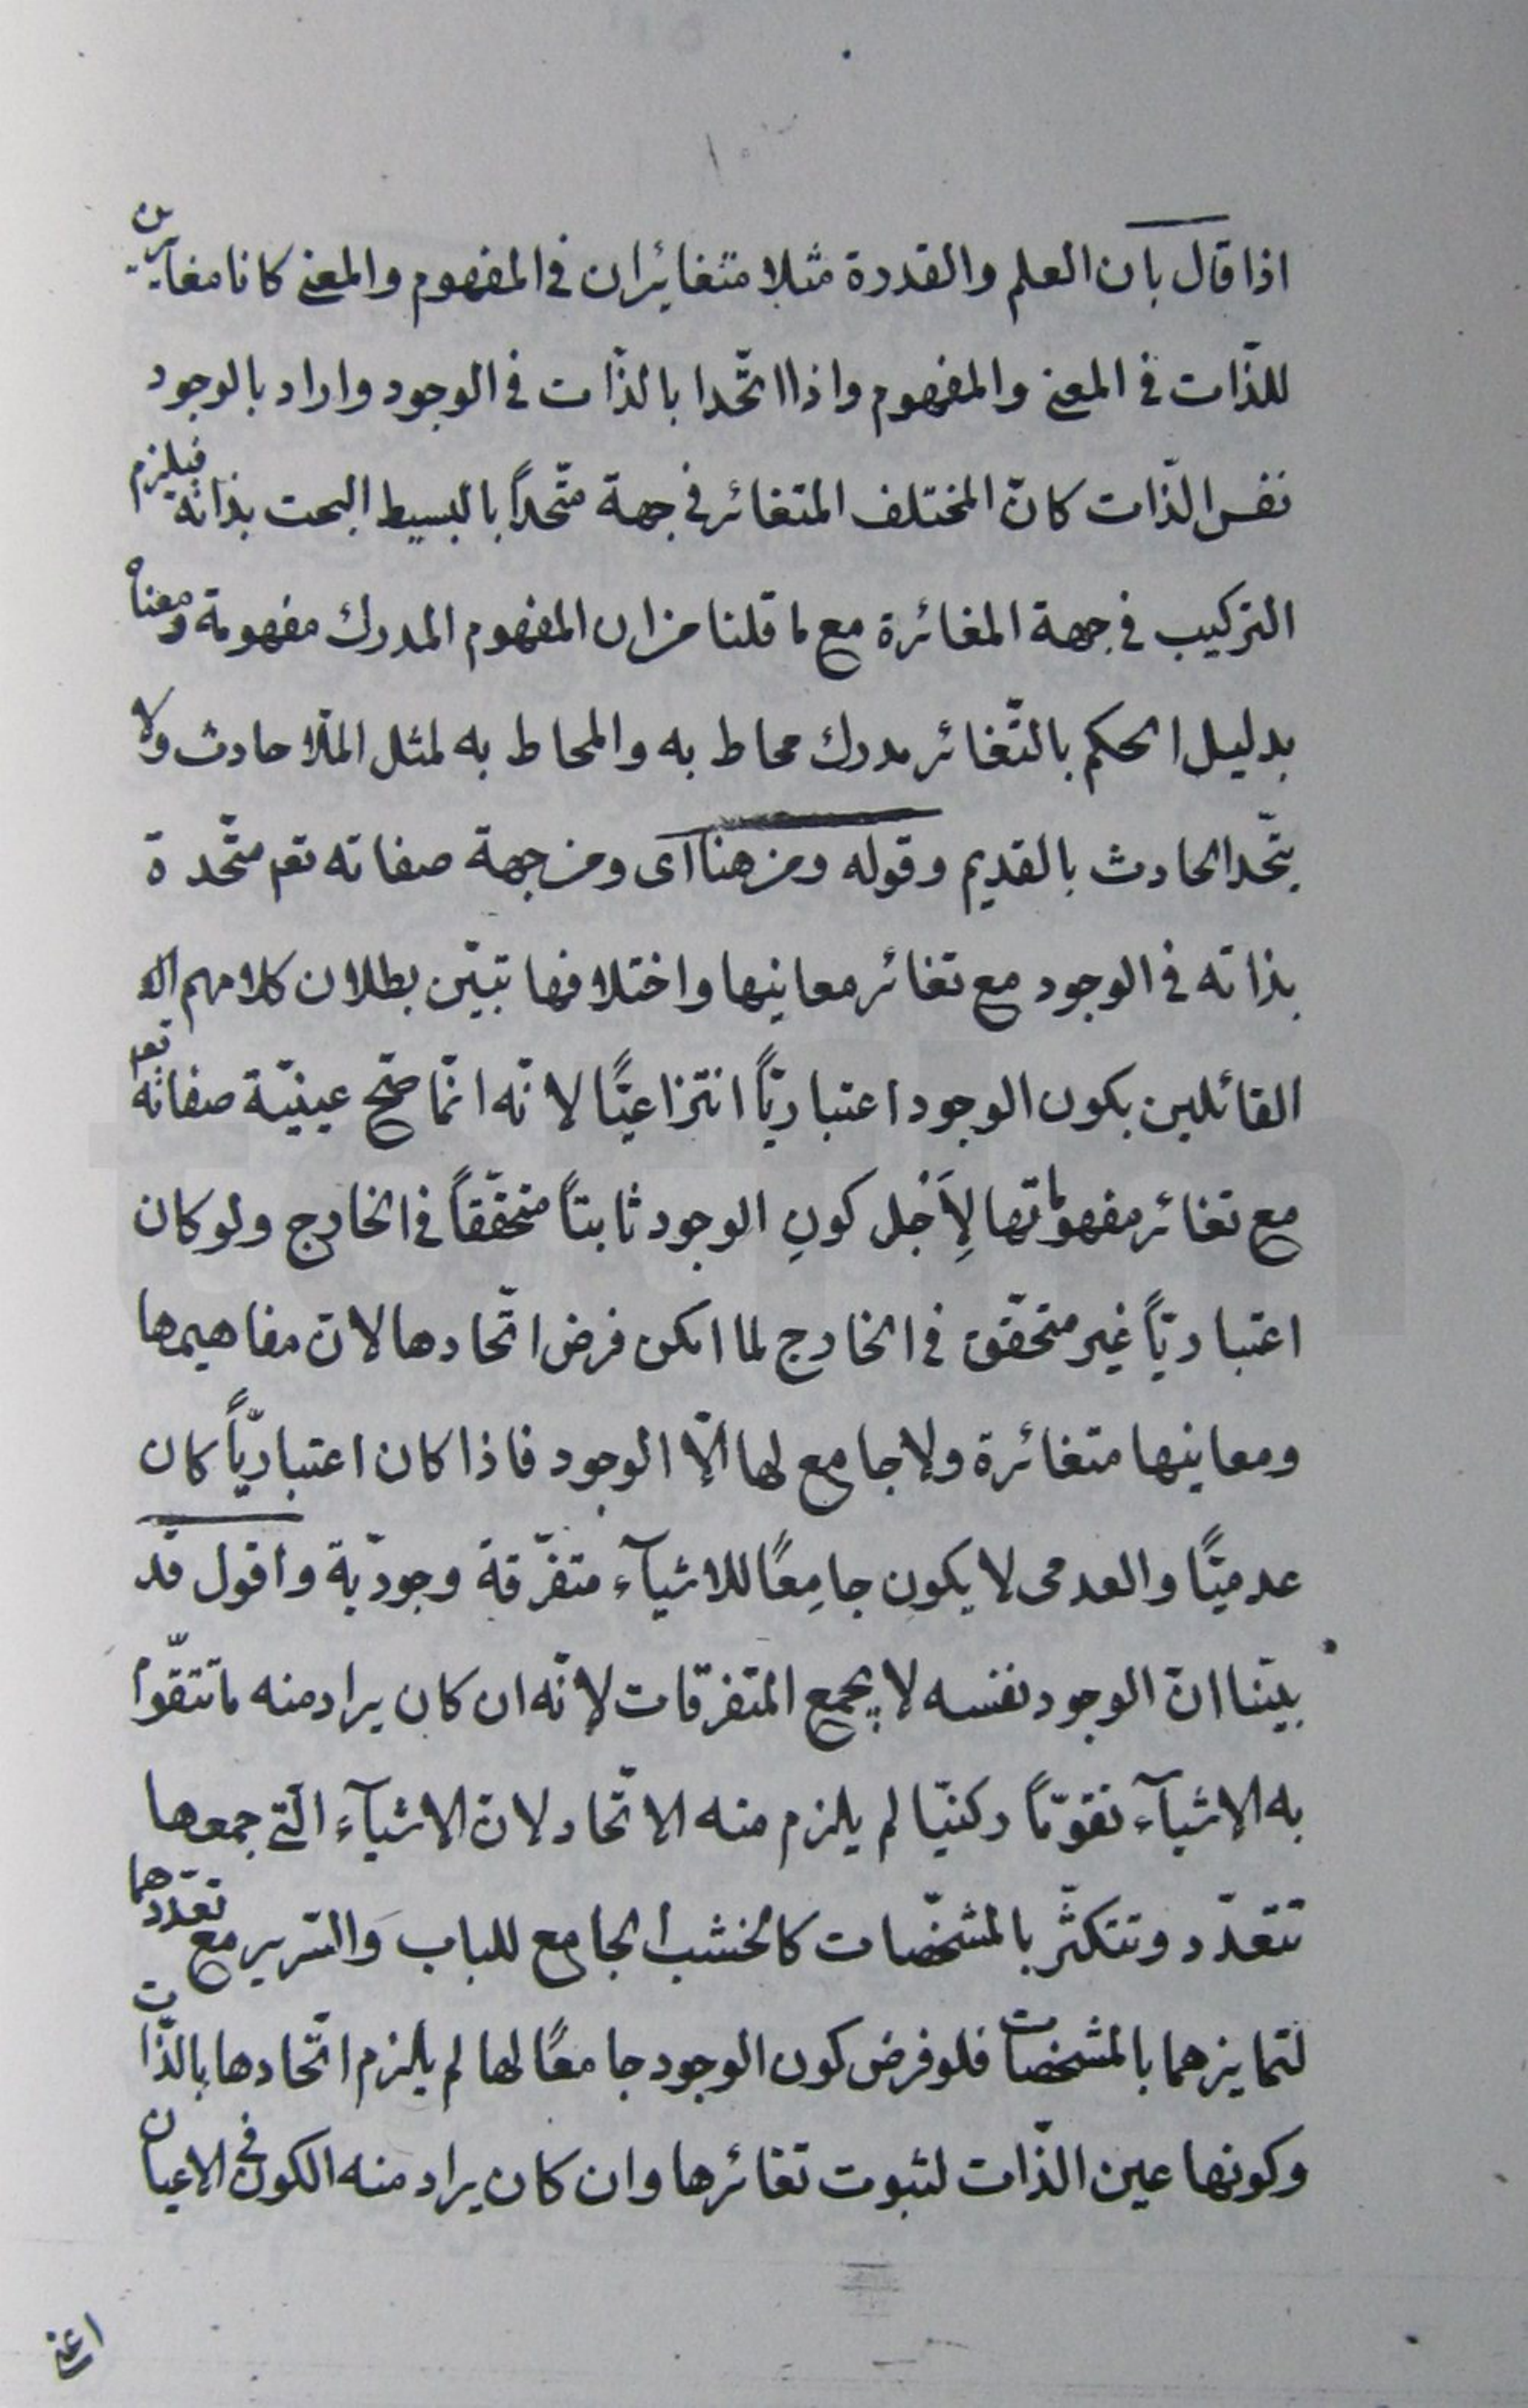 اذا قال بان العلم والقدرة مثلا متغائران فى المفهوم والمعنى كانا مغايرين
للذّات فى المعنى والمفهوم واذا اتّحدا بالذّات فى الوجود واراد بالوجود
نفس الذّات كان المختلف المتغائر فى جهة متّحداً بالبسيط البحت بذاته فيلزم
التركيب فى جهة المغائرة مع ما قلنا من ان المفهوم المدرك مفهومة ومعناه
بدليل الحكم بالتّغائر مدرك محاط به والمحاط به لمثل الملّا حادث ولا
يتّحد الحادث بالقديم وقوله ومن هنا اى ومن جهة صفاته تعم متّحدة
بذاته فى الوجود مع تغائر معانيها واختلافها تبيّن بطلان كلامهم اى
القائلين بكون الوجود اعتباريّاً انتزاعيًّا لانّه انّما صحّ عينيّة صفاته تعم
مع تغائر مفهوماتها لِاَجْل كونِ الوجود ثابتاً متحقّقاً فى الخارج ولو كان
اعتباريّاً غير متحقّق فى الخارج لما امكن فرض اتّحادها لانّ مفاهيمها
ومعانيها متغائرة ولا جامع لها الّا الوجود فاذا كان اعتباريّاً كان
عدميّا والعدمى لا يكون جامِعًا للاشيآء متفرّقة وجوديّة واقول قد
بيّنا انّ الوجود نفسه لا يجمع المتفرّقات لانّه ان كان يراد منه ما تتقوّم
به الاشيآء تقوّماً ركنيّا لم يلزم منه الاتّحاد لانّ الاشيآء الّتى جمعها
تتعدّد وتتكثّر بالمشخّصات كالخشب الجامع للباب وَالسّرير مع تعدّدهما
لتمايزهما بالمشخصات فلو فرض كون الوجود جامعًا لها لم يلزم اتّحادها بالذّات
وكونها عين الذّات لثبوت تغائرها وان كان يراد منه الكون فى الاعيان
اعنى